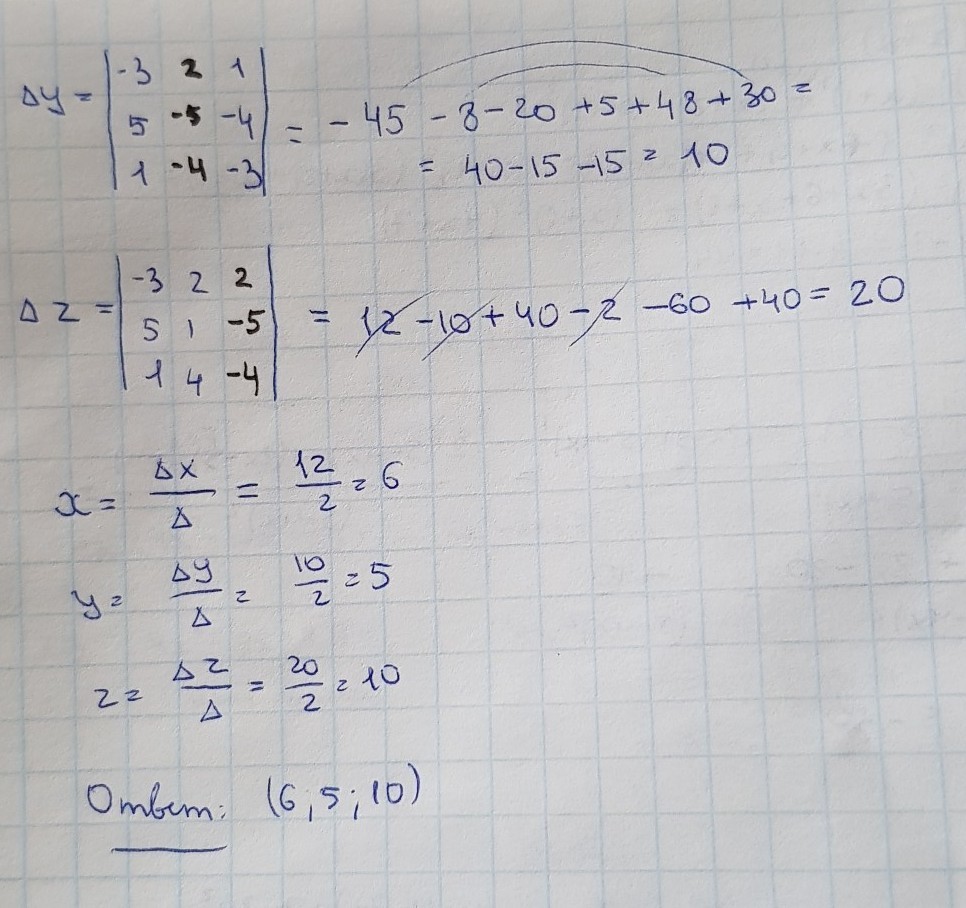 Δy = | -3 2 1 |
| 5 -5 -4 | = - 45 - 8 - 20 + 5 + 48 + 30 =
| 1 -4 -3 | = 40 - 15 - 15 = 10
Δz = | -3 2 2 |
| 5 1 -5 | = 12 - 10 + 40 - 2 - 60 + 40 = 20
| 1 4 -4 |
x = Δx/Δ = 12/2 = 6
y = Δy/Δ = 10/2 = 5
z = Δz/Δ = 20/2 = 10
Ответ: (6; 5; 10)